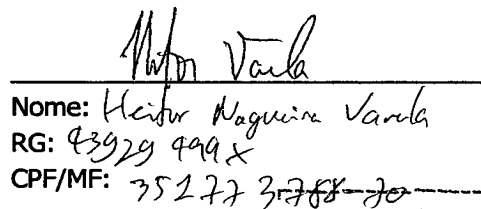 Heitor Varela
Nome: Heitor Nogueira Varela
RG: 43929 499 X
CPF/MF: 351773788-70